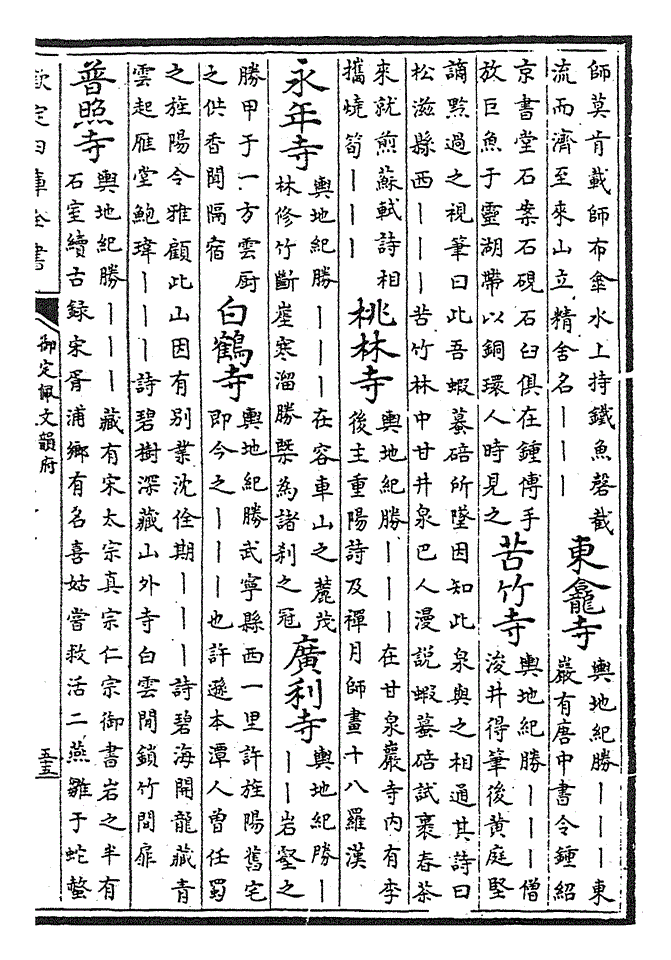 師莫肯載師布傘水上持鐵魚磬截
流而濟至來山立精舍名｜｜｜
東龕寺
輿地紀勝｜｜｜東
巖有唐中書令鍾紹
京書堂石案石硯石臼俱在鍾傳手
放巨魚于靈湖帶以銅環人時見之
苦竹寺
輿地紀勝｜｜｜僧
浚井得筆後黄庭堅
謫黔過之視筆曰此吾蝦蟇碚所墜因知此泉與之相通其詩曰
松滋縣西｜｜｜苦竹林中甘井泉巴人漫說蝦蟇碚試裹春茶
來就煎蘇軾詩相
攜燒筍｜｜｜
桃林寺
輿地紀勝｜｜｜在甘泉巖寺内有李
後主重陽詩及禪月師畫十八羅漢
永年寺
輿地紀勝｜｜｜在容車山之麓茂
林修竹斷崖寒溜勝槩為諸刹之冠
廣利寺
輿地紀勝｜
｜｜岩壑之
勝甲于一方雲厨
之供香聞隔宿
白鶴寺
輿地紀勝武寧縣西一里許旌陽舊宅
即今之｜｜｜也許遜本潭人曾任蜀
之旌陽令雅顧此山因有别業沈佺期｜｜｜詩碧海開龍藏青
雲起雁堂鮑瑋｜｜｜詩碧樹深藏山外寺白雲閒鎖竹間扉
普照寺
輿地紀勝｜｜｜藏有宋太宗真宗仁宗御書岩之半有
石室續古録宋胥浦鄉有名喜姑嘗救活二燕雛于蛇螫
欽定四庫全書
御定佩文韻府
五五